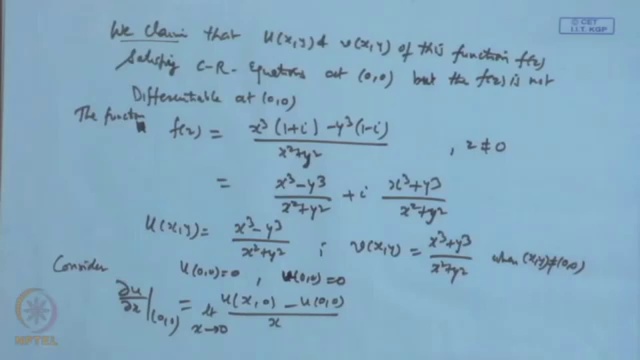 © CET
I.I.T. KGP
We claim that u(x,y) & v(x,y) of this function f(z)
Satisfing C-R- Equations at (0,0) but the f(z) is not
Differentiable at (0,0)
The funct
f(z) = x³(1+i) - y³(1-i) / x²+y² , z ≠ 0
= x³-y³ / x²+y² + i x³+y³ / x²+y²
u(x,y) = x³-y³ / x²+y² ; v(x,y) = x³+y³ / x²+y² when (x,y)≠(0,0)
Consider u(0,0)=0 , v(0,0)=0
∂u/∂x |(0,0) = lt x→0 u(x,0) - u(0,0) / x
NPTEL